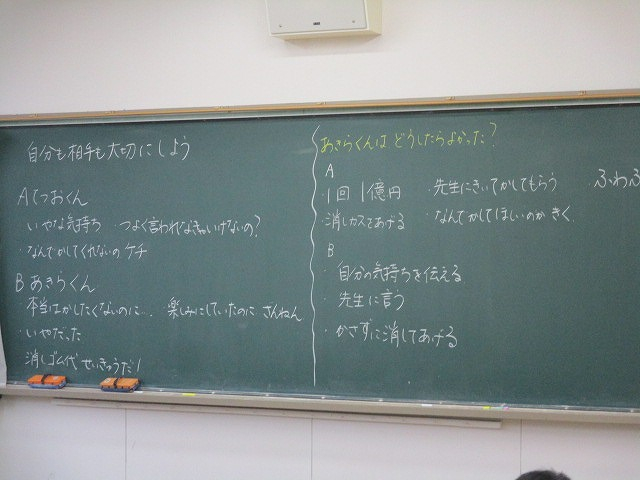 自分も相手も大切にしよう
Aてつおくん
いやな気持ち つよく言われなきゃいけないの?
・なんでかしてくれないの ケチ
Bあきらくん
本当はかしたくないのに… 楽しみにしていたのに ざんねん
・いやだった
消しゴム代 せいきゅうだ!
あきらくんは どうしたらよかった?
A
・1回 1億円 ・先生にきいてかしてもらう
消しカスであげる ・なんでかしてほしいのか きく
ふわふ
B
・自分の気持ちを伝える
・先生に言う
・かさずに消してあげる